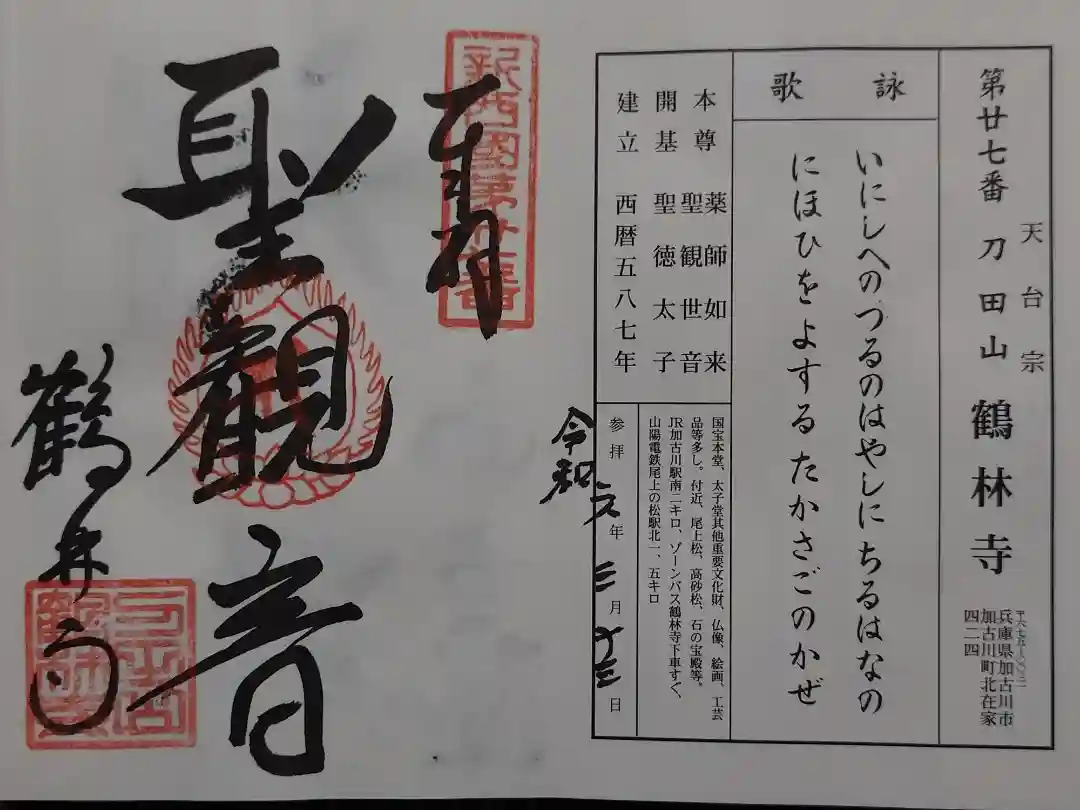 天台宗
第廿七番 刀田山 鶴林寺
〒六七五―〇〇三一
兵庫県加古川市
加古川町北在家
四二四
詠歌
いにしへのつるのはやしにちるはなの
にほひをよするたかさごのかぜ
本尊 薬師如来
聖観世音
開基 聖徳太子
建立 西暦五八七年
国宝本堂、太子堂其他重要文化財、仏像、絵画、工芸
品等多し。付近、尾上松、高砂松、石の宝殿等。
JR加古川駅南二キロ、ゾーンバス鶴林寺下車すぐ、
山陽電鉄尾上の松駅北一、五キロ
参拝 令和六年三月十三日
新西國第廿七番
奉拝
聖観音
鶴林寺